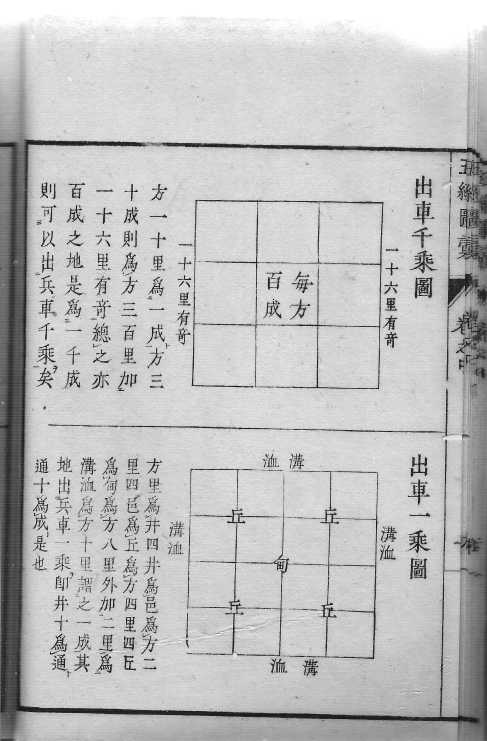 出車千乘圖
一十六里有竒
每方
百成
一十六里有竒
方一十里爲一成方三
十成則爲方三百里加
一十六里有竒總之亦
百成之地是爲一千成
則可以出兵車千乘矣
出車一乘圖
溝洫
溝洫
丘
丘
甸
丘
丘
溝洫
溝洫
方里爲井四井爲邑爲方二
里四邑爲丘爲方四里四丘
爲甸爲方八里外加二里爲
溝洫爲方十里謂之一成其
地出兵車一乘卽井十爲通
通十爲成是也